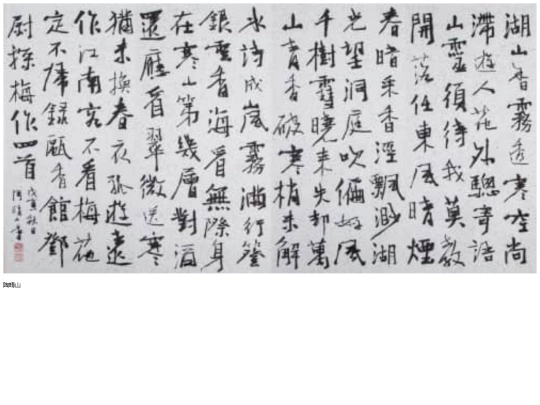 湖山香霧透寒空尚
滯遊人花外驄寄語
山靈須待我莫教
開落任東風晴煙
春暗采香涇飄渺湖
光望洞庭吹徧好風
千樹雪曉来失却萬
山青香破寒梢未解
冰詩成嵐霧滿行簦
銀雲香海看無際身
在寒山第幾層對酒
還應看翠微送寒
猶未換春衣孤遊遠
作江南客不看梅花
定不歸錄甌香館鄧
尉探梅作四首
戊寅秋日